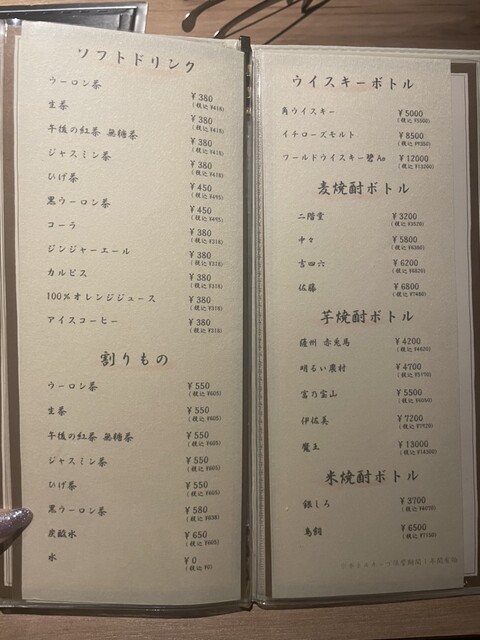 ソフトドリンク
ウーロン茶 ¥380 (税込 ¥418)
生茶 ¥380 (税込 ¥418)
午後の紅茶 無糖茶 ¥380 (税込 ¥418)
ジャスミン茶 ¥380 (税込 ¥418)
ひげ茶 ¥450 (税込 ¥495)
黒ウーロン茶 ¥450 (税込 ¥495)
コーラ ¥380 (税込 ¥318)
ジンジャーエール ¥380 (税込 ¥318)
カルピス ¥380 (税込 ¥318)
100%オレンジジュース ¥380 (税込 ¥318)
アイスコーヒー ¥380 (税込 ¥318)
割りもの
ウーロン茶 ¥550 (税込 ¥605)
生茶 ¥550 (税込 ¥605)
午後の紅茶 無糖茶 ¥550 (税込 ¥605)
ジャスミン茶 ¥550 (税込 ¥605)
ひげ茶 ¥550 (税込 ¥605)
黒ウーロン茶 ¥580 (税込 ¥638)
炭酸水 ¥650 (税込 ¥605)
水 ¥0 (税込 ¥0)
ウイスキーボトル
角ウイスキー ¥5000 (税込 ¥5500)
イチローズモルト ¥8500 (税込 ¥9350)
ワールドウイスキー碧Ao ¥12000 (税込 ¥13200)
麦焼酎ボトル
二階堂 ¥3200 (税込 ¥3520)
中々 ¥5800 (税込 ¥6380)
吉四六 ¥6200 (税込 ¥6820)
佐藤 ¥6800 (税込 ¥7480)
芋焼酎ボトル
薩州 赤兎馬 ¥4200 (税込 ¥4620)
明るい農村 ¥4700 (税込 ¥5170)
富乃宝山 ¥5500 (税込 ¥6050)
伊佐美 ¥7200 (税込 ¥7920)
魔王 ¥13000 (税込 ¥14300)
米焼酎ボトル
銀しろ ¥3700 (税込 ¥4070)
鳥飼 ¥6500 (税込 ¥7150)